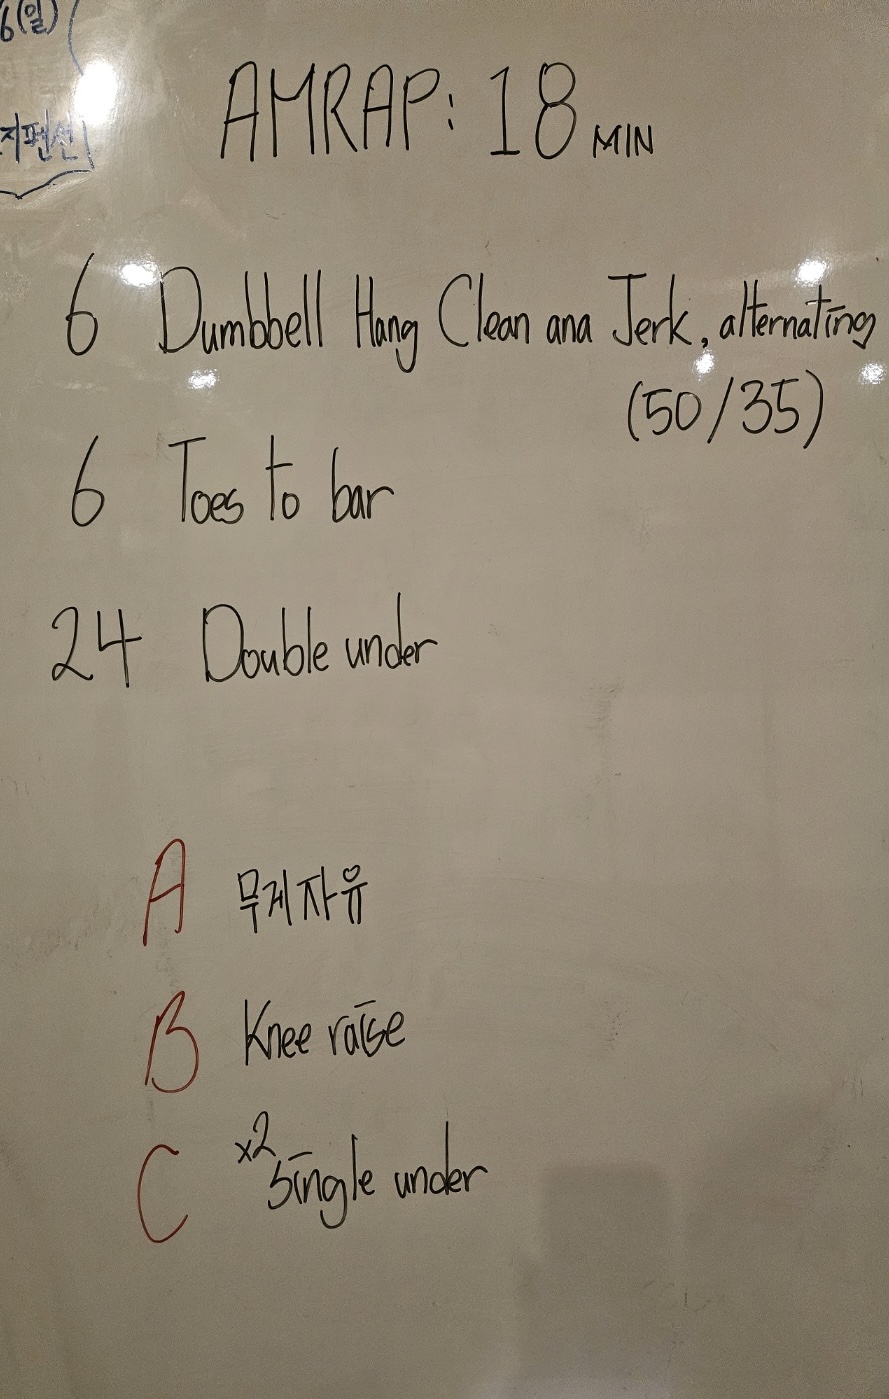 6(일)
AMRAP: 18 MIN
6 Dumbbell Hang Clean ana Jerk, alternating
(50/35)
6 Toes to bar
24 Double under
A 무게자유
B Knee raise
C x2 Single under